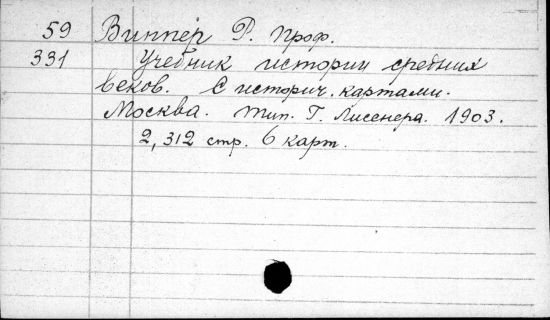 59 Виппер Р. Проф.
331 Учебник истории средних
веков. С историч. картами.
Москва. Тип. Г. Лиссенера. 1903.
2, 312 стр. 6 карт.